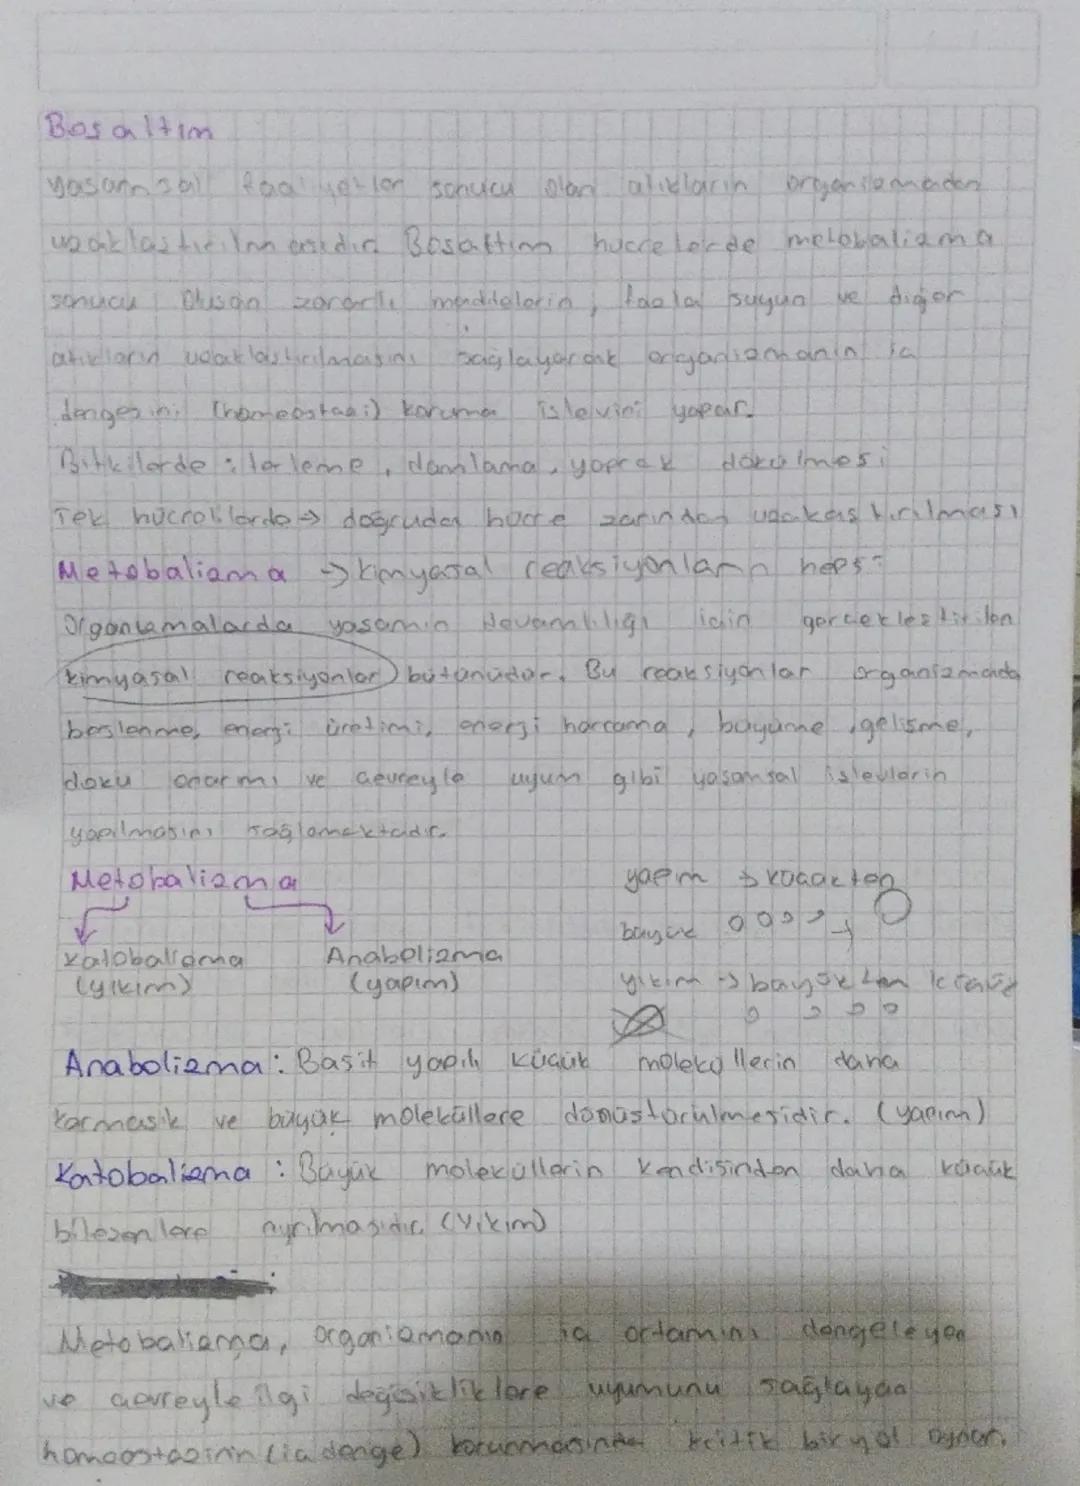 Bosaltım
yasamsal faaliyetler sonucu olan atıkların organizmadan
uzaklastırılmasıdır. Bosaltım hücrelerde metobalizma
sonucu Olusan zararlı maddelerin, fazla suyun ve diğer
atıkların uzaklastırılmasını sağlayarak organizmanın ic
dengesini (homeostazi) koruma islevini yapar.
Bitkilerde : terleme, damlama, yaprak dökülmesi
Tek hücrelilerde → doğrudan hücre zarından uzakastırılması
Metobalizma → kimyasal reaksiyonların hepsi
Organizmalarda yasamın devamlılığı icin gerceklestirilen
kimyasal reaksiyonlar bütünüdür. Bu reaksiyonlar organizmada
beslenme, enerji üretimi, enerji harcama, büyüme, gelisme,
doku onarmı ve cevreyle uyum gibi yasamsal islevlerin
yapılmasını sağlamaktadır.
Metobalizma
yapım → kücükten
büyük
Katobalizma Anabolizma
(yıkım) (yapım)
yıkım → büyükten kücük
Anabolizma : Basit yapılı kücük moleküllerin daha
karmasık ve büyük moleküllere dönüstürülmesidir. (yapım)
Katobalizma : Büyük moleküllerin kendisinden daha kücük
bilesenlere ayrılmasıdır. (Yıkım)
Metobalizma, organizmanın ic ortamını dengeleyen
ve cevreyle ilgi değisikliklere uyumunu sağlayan
homeostazinin (ic denge) korunmasında kritik bir yol oynar.